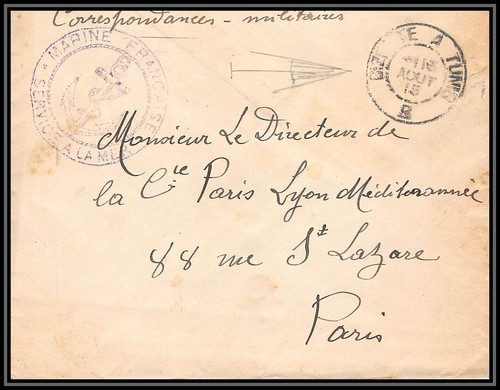 Correspondances - militaires
MARINE FRANCAISE
SERVICE A LA MER
BIZERTE A TUNIS
AOUT
15
Monsieur Le Directeur de
la Cie Paris Lyon Méditerannée
88 rue St Lazare
Paris